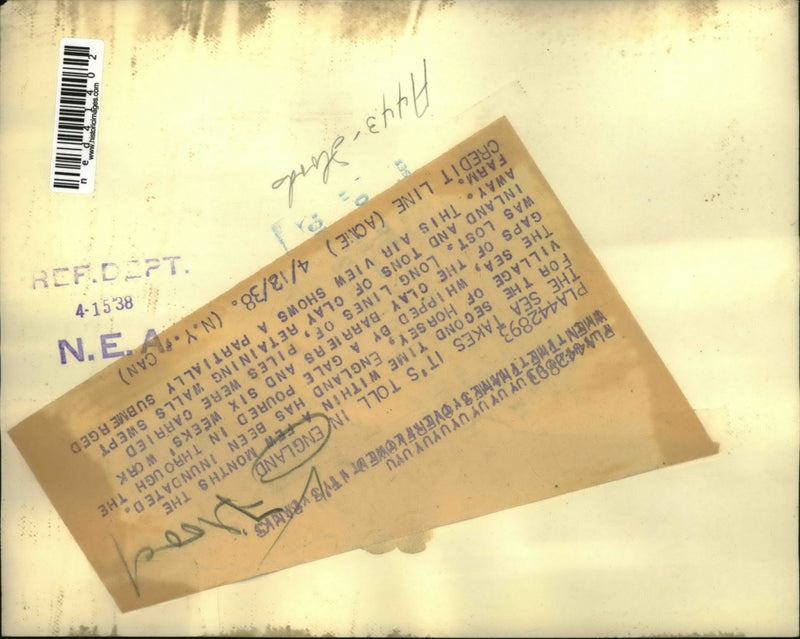 ned41402
www.historicimages.com
REF. DEPT.
4-15 38
N.E.A.
PLA442893
THE SEA TAKES IT'S TOLL IN ENGLAND
FOR THE SECOND TIME WITHIN A FEW MONTHS THE
VILLAGE OF HORSEY, ENGLAND HAS BEEN INUNDATED.
THE SEA, WHIPPED BY A GALE POURED IN THROUGH THE
GAPS OF CLAY BARRIERS AND SIX WEEKS' WORK
WAS LOST. THE LONG LINES OF PILING WERE CARRIED
INLAND AND TONS OF CLAY RETAINING WALLS SWEPT
AWAY. THIS AIR VIEW SHOWS A PARTIALLY SUBMERGED
FARM.
CREDIT LINE (ACME) 4/12/38. (N.Y. CAN)
Flood